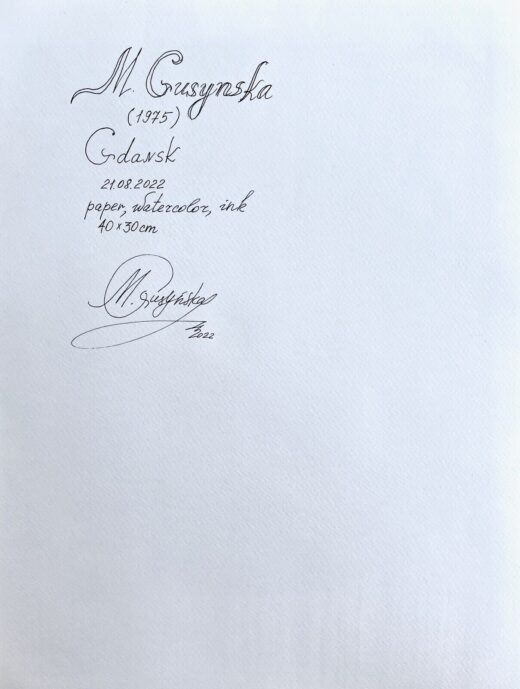 M. Gusynska
(1975)
Gdansk
21.08.2022
paper, watercolor, ink
40 x 30 cm
M. Gusyńska
2022